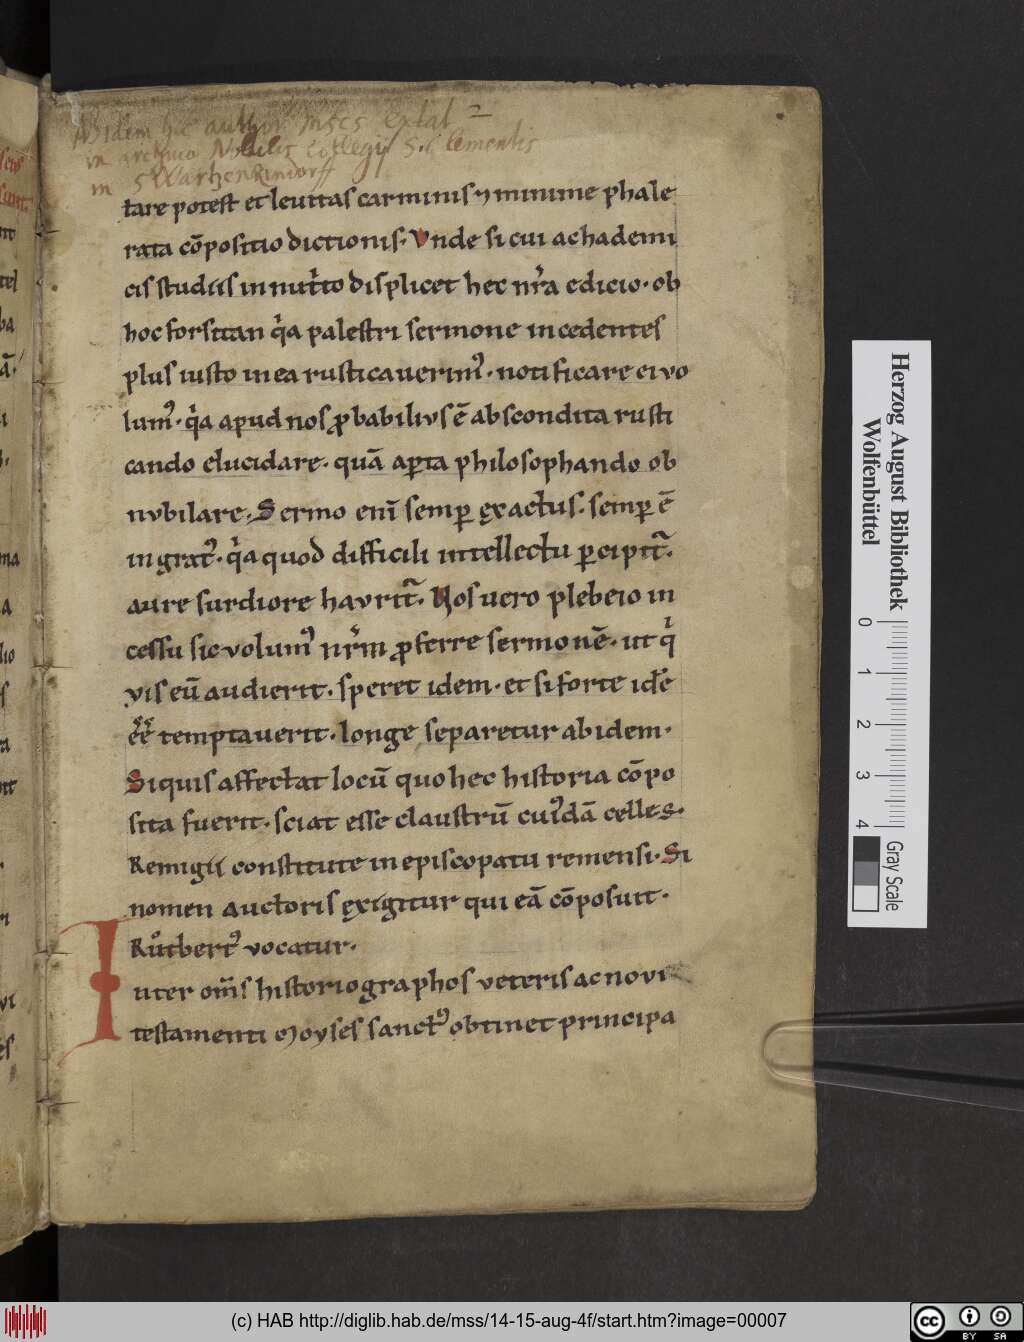 Idem hic author mscs extat 2
in archivo Nobilis Collegii S. Clementis
in
tare potest et leuitas carminis ⁊ minime phale
rata cōpositio dictionis. Vnde si cui achademi
cis studiis innut͛to displicet hec nr̄a edicio. ob
hoc forsitan qͥa palestri sermone incedentes
plus iusto in ea rusticauerimꝰ. notificare ei vo
lumꝰ. qͥa apud nos ꝓbabilivs ē abscondita rusti
cando elucidare. quā aꝑta philosophando ob
nvbilare. Sermo eni̅ semꝑ ęxactus. semꝑ ē
ingratꝰ. qͥa quod difficili intellectu ꝑcipit᷑.
aure surdiore havrit᷑. Nos uero plebeio in
cessu sic volumꝰ nr̄m ꝓferre sermonē. ut qͥ
vis eū audierit. speret idem. et si forte idē
eē temptauerit. longe separetur ab idem.
Siquis affectat locū quo hec historia cōpo
sita fuerit. sciat esse claustrū cuiꝰdā celles.
Remigii constitute in episcopatu remensi. Si
nomen auctoris ęxigitur qui eā cōposuit.
Rutbertꝰ vocatur.
Inter om̄s historiographos veteris ac novi
testamenti Moyses sanctꝰ obtinet principa
Herzog August Bibliothek
Wolfenbüttel
0 1 2 3 4
Gray Scale
(c) HAB http://diglib.hab.de/mss/14-15-aug-4f/start.htm?image=00007
cc BY SA